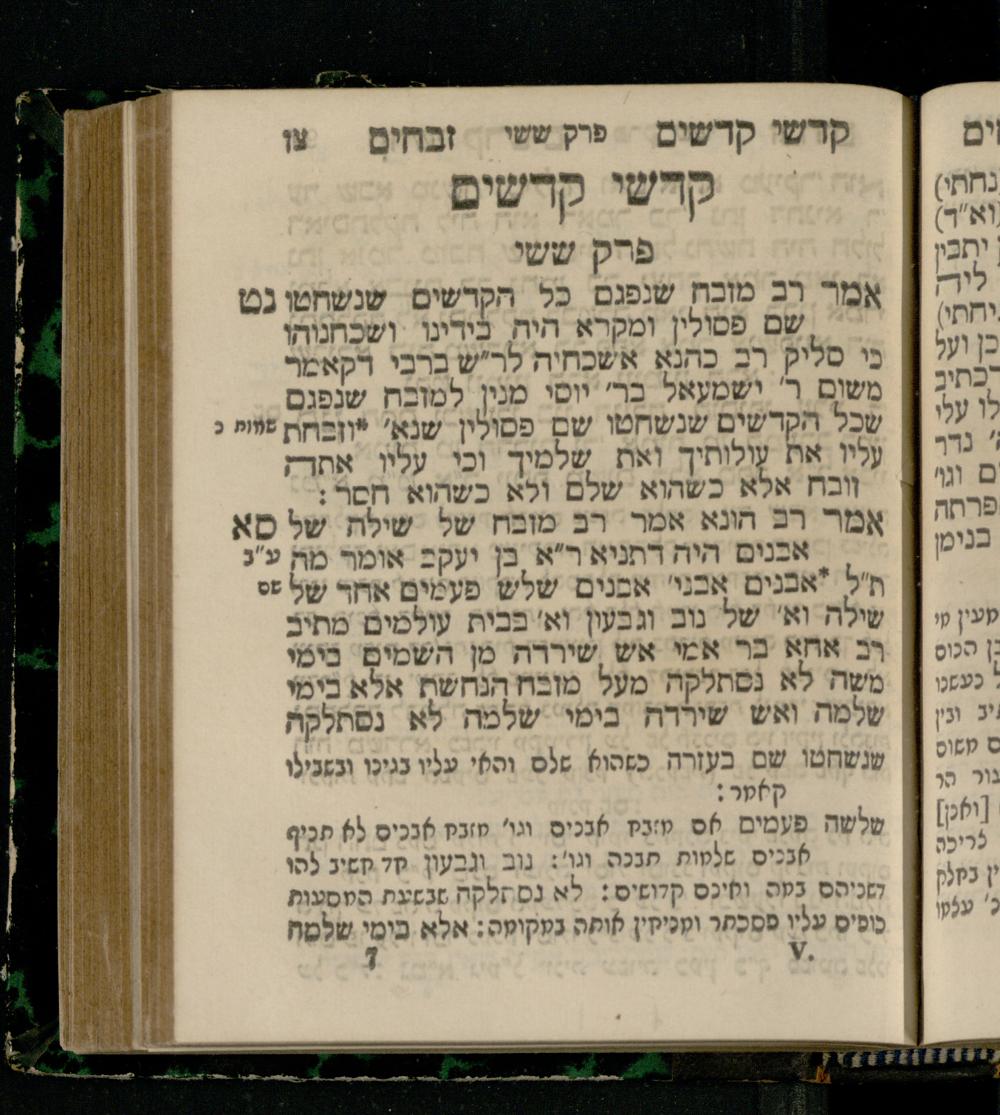 קדשי קדשים פרק ששי זבחים צו
קדשי קדשים
פרק ששי
אמר רב מזבח שנפגם כל הקדשים שנשחטו נט
שם פסולין ומקרא היה בידינו ושכחנוהו
כי סליק רב כהנא אשכחיה לר״ש ברבי דקאמר
משום ר׳ ישמעאל בר׳ יוסי מנין למזבח שנפגם
שכל הקדשים שנשחטו שם פסולין שנא׳ *וזבחת שמות כ
עליו את עולותיך ואת שלמיך וכי עליו אתה
זובח אלא כשהוא שלם ולא כשהוא חסר :
אמר רב הונא אמר רב מזבח של שילה של סא
אבנים היה דתניא ר״א בן יעקב אומר מה ע״ב
ת״ל *אבנים אבני׳ אבנים שלש פעמים אחד של שם
שילה וא׳ של נוב וגבעון וא׳ בבית עולמים מתיב
רב אחא בר אמי אש שירדה מן השמים בימי
משה לא נסתלקה מעל מזבח הנחשת אלא בימי
שלמה ואש שירדה בימי שלמה לא נסתלקה
שנשחטו שם בעזרה כשהוא שלם והאי עליו בגינו ובשבילו
קאמר :
שלשה פעמים אם מזבח אבנים וגו׳ מזבח אבנים לא תניף
אבנים שלמות תבנה וגו׳ : נוב וגבעון חד חשיב להו
דשניהם במה ואינם קדושים : לא נסתלקה שבשעת המסעות
כופים עליו פסכתר ומניחין אותה במקומה : אלא בימי שלמה
V. 7
נחתי)
וא״ד)
יתבין
ליה
יחתי)
כן ועל
דכתיב
עלי
נדר
ם וגו׳
פרתה
בנימן
הכוס
כעשנו
ובין
משום
[ואכן]